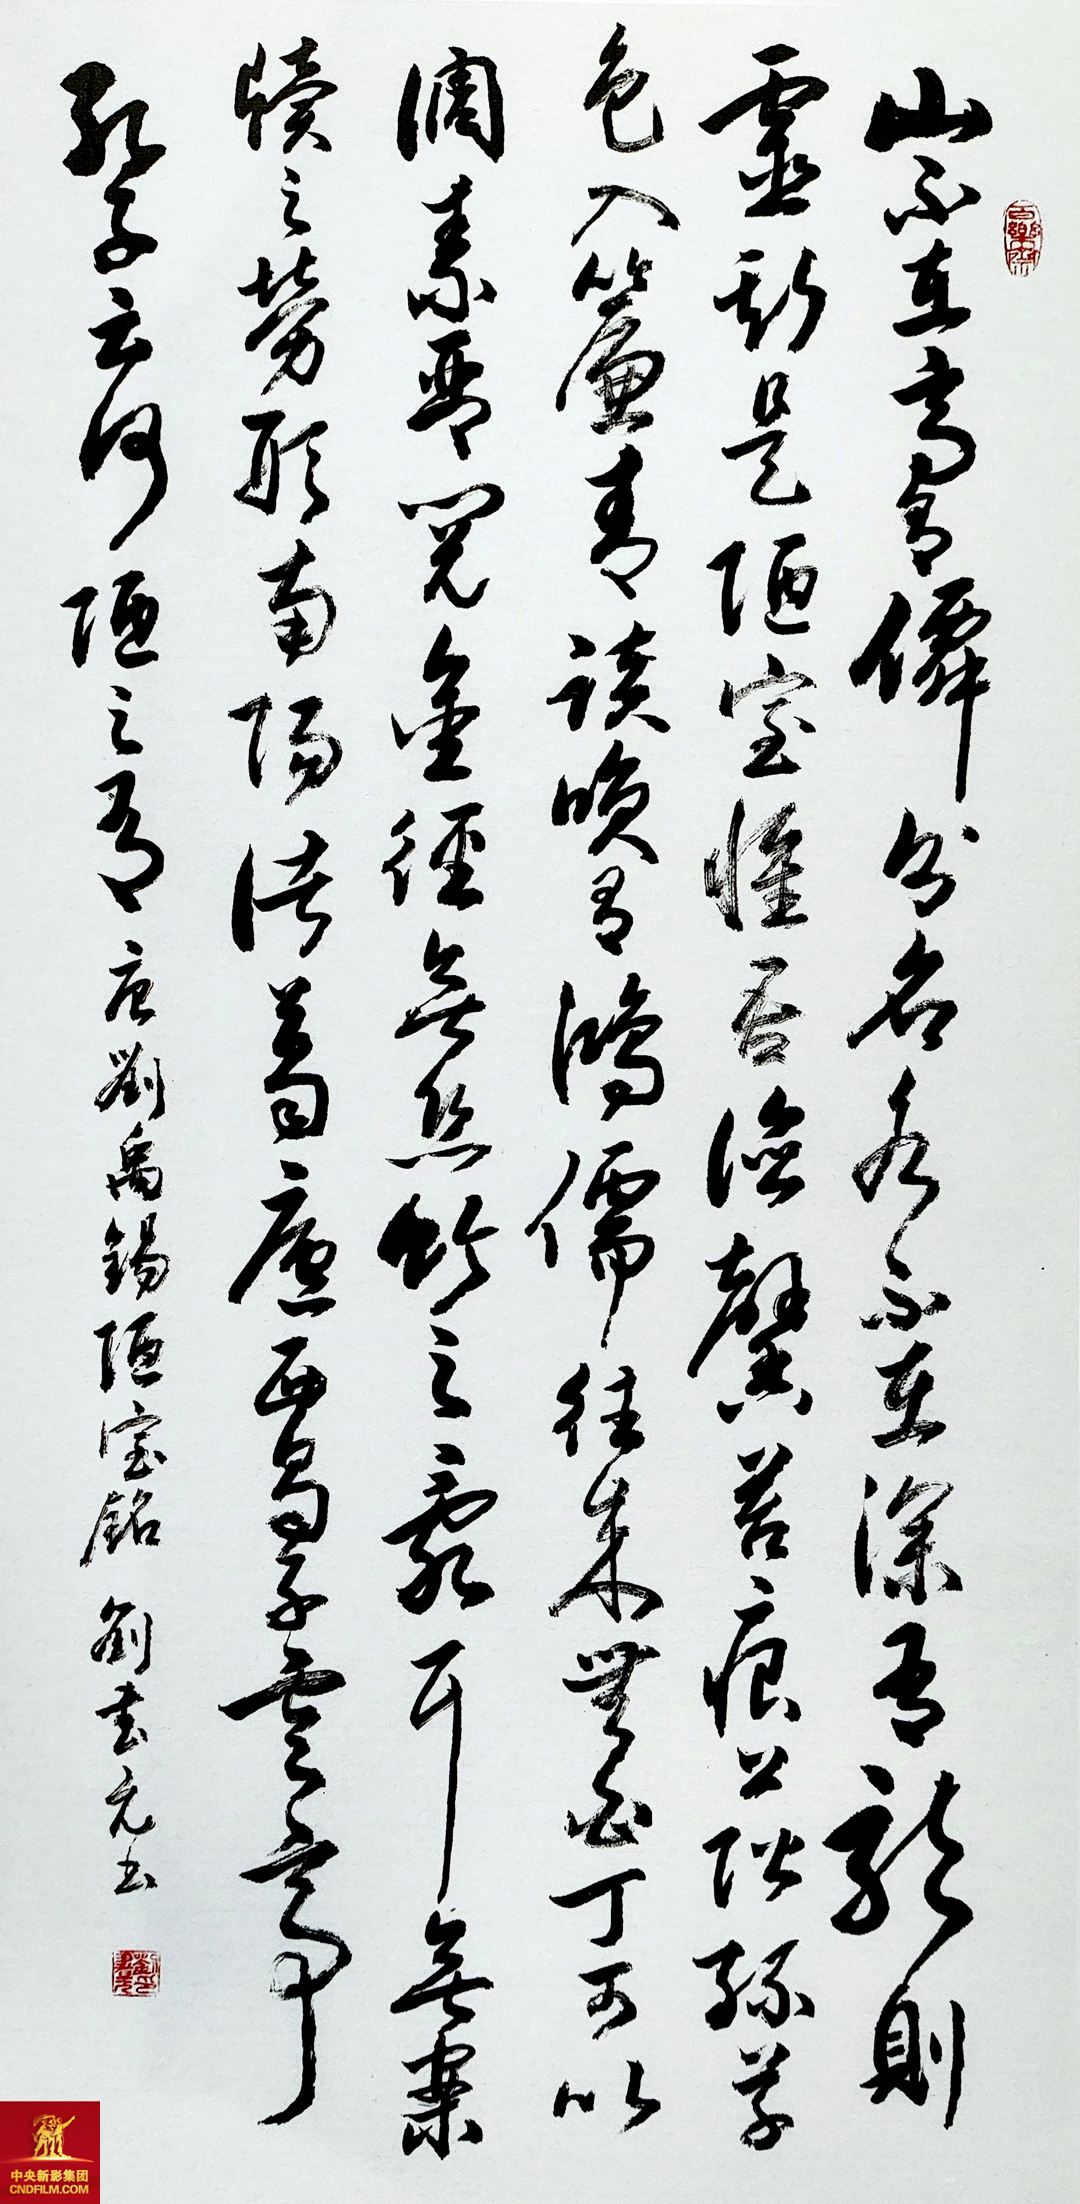 山不在高有僊則名水不在深有龍則
靈斯是陋室惟吾德馨苔痕上階綠草
色入簾青談咲有鴻儒往來無白丁可以
調素琴閱金經無絲竹之亂耳無案
牘之勞形南陽諸葛廬西蜀子雲亭
孔子云何陋之有 唐劉禹錫陋室銘 劉書元书
中央新影集团
CNDFILM.COM